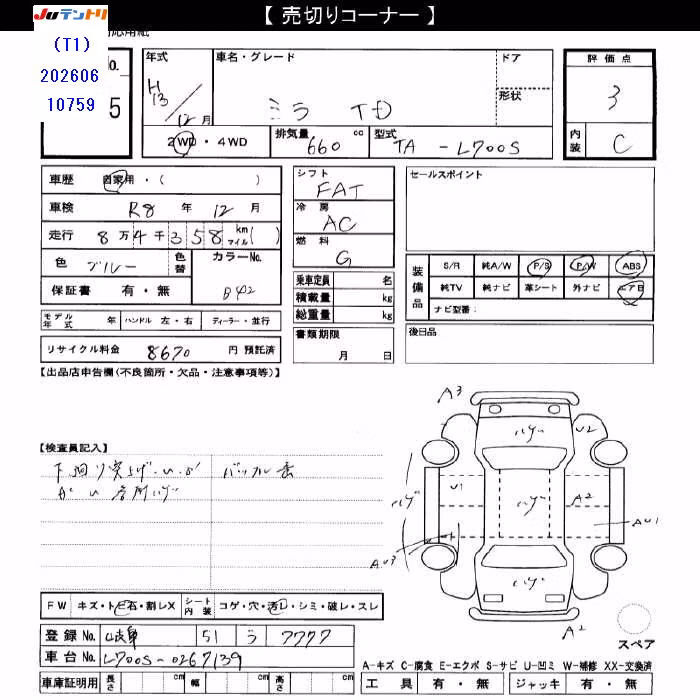 【 売切りコーナー 】
JUテントリ
(T1)
202606
10759
応用紙
No.
5
年式
H13/12月
車名・グレード
ミラ TD
ドア
形状
評価点
3
内装
C
2WD・4WD
排気量 660 cc
型式 TA-L700S
車歴 自家用・( )
車検 R8年12月
走行 8万4千358 km マイル( )
色 ブルー
色替
カラーNo. B42
保証書 有・無
シフト FAT
冷房 AC
燃料 G
乗車定員 名
積載量 kg
総重量 kg
書類期限
月 日
セールスポイント
装備品
S/R 純A/W P/S P/W ABS
純TV 純ナビ 革シート 外ナビ エアB
ナビ型番:
後日品
モデル年式 年 ハンドル 左・右 ディーラー・並行
リサイクル料金 8670 円 預託済
【出品店申告欄(不良箇所・欠品・注意事項等)】
【検査員記入】
下回り突上げ
A3
ハゲ
U2
U1
ハゲ
ハゲ
A2
AU1
AU3
ハゲ
A2
スペア
FW キズ・トビ石・割レX シート内装 コゲ・穴・汚レ・シミ・破レ・スレ
登録No. 岐阜 51 ラ 7777
車台No. L700S-0267139
車庫証明用 長さ cm 幅 cm 高さ cm
A-キズ C-腐食 E-エクボ S-サビ U-凹ミ W-補修 XX-交換済
工具 有・無 ジャッキ 有・無